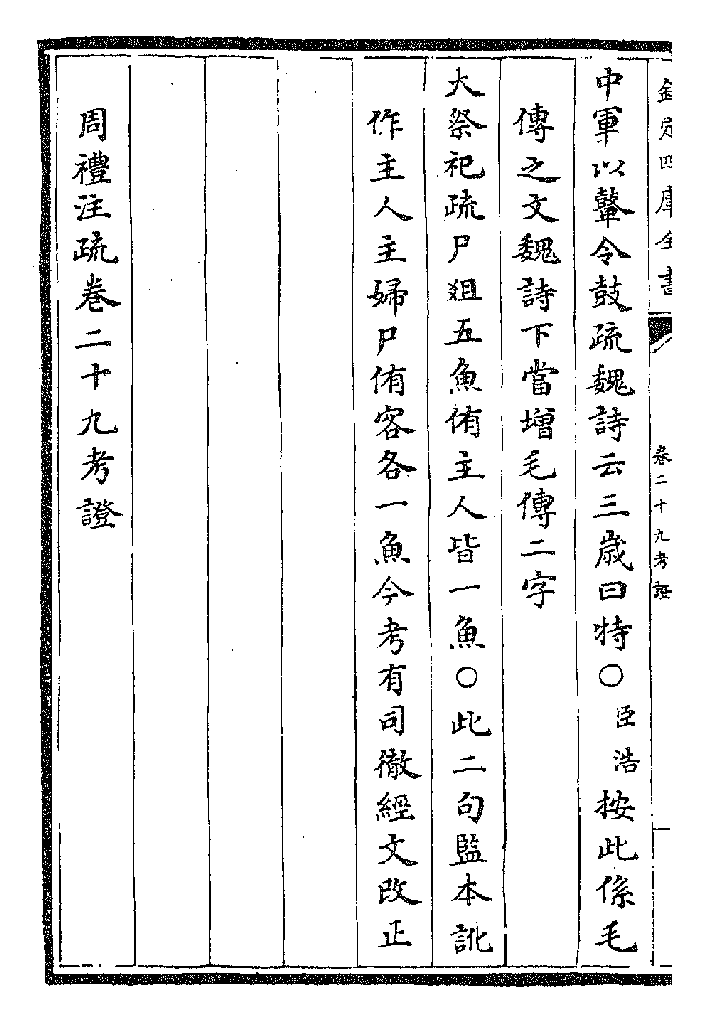 欽定四庫全書
卷二十九考證
中軍以鼙令鼓疏魏詩云三歲曰特○臣浩按此係毛
傳之文魏詩下當增毛傳二字
大祭祀疏尸俎五魚侑主人皆一魚○此二句監本訛
作主人主婦尸侑容各一魚今考有司徹經文改正
周禮注疏卷二十九考證